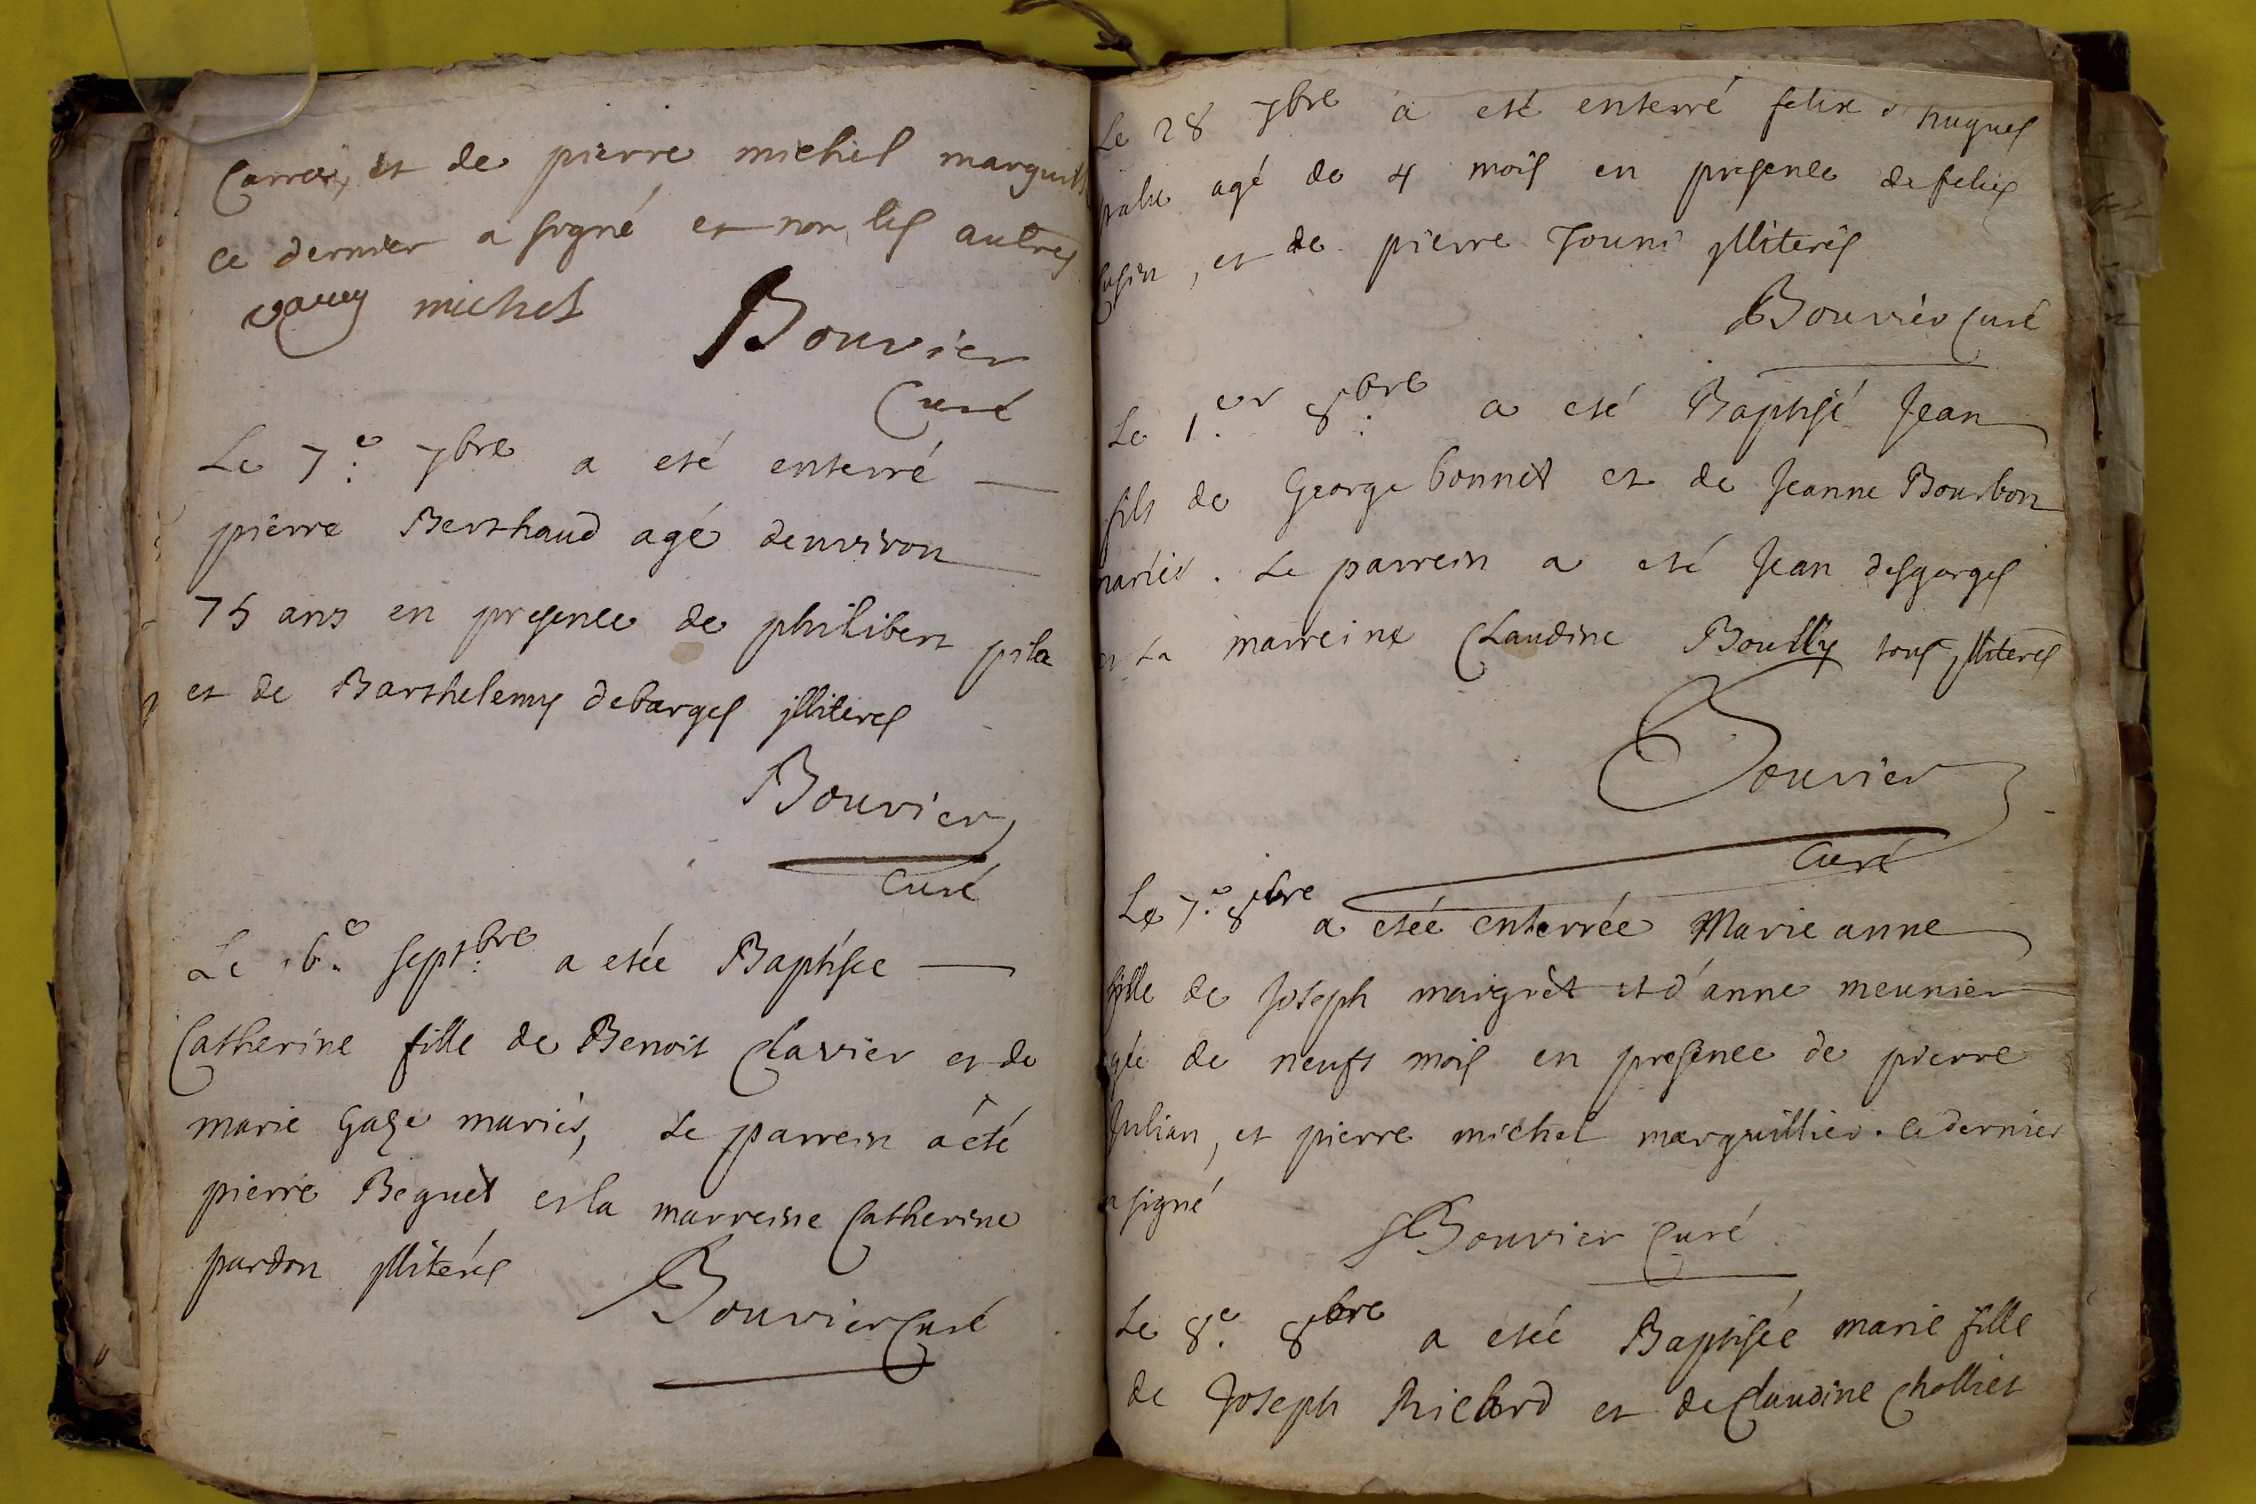 et de pierre michel
ce dernier a signé et non les autres
michel
Bouvier
Curé
Le 7.e 7bre a eté enterré
pierre Berthaud agé denviron
75 ans en presence de philibert pila
et de Barthelemy debarges illiterés
Bouvier
Curé
Le 6.e septbre a etée Baptisée
Catherine fille de Benoit Clavier et de
marie Gaze mariés, Le parrein a été
pierre Beguet et la marreine Catherine
pardon illiterés
Bouvier Curé
Le 28 7bre a eté enterré felix hugues
agé de 4 mois en presence de felix
et de pierre Jouni illiterés
Bouvier Curé
Le 1.er 8bre a eté Baptisé Jean
fils de George bonnet et de Jeanne Bourbon
mariés. Le parrein a eté Jean desgarges
et La marreine Claudine Boully tous illiterés
Bouvier
Curé
Le 7.e 8bre a etée enterrée Marie anne
fille de Joseph margrét et d'anne meunier
agée de neufs mois en presence de pierre
Julian, et pierre michel marguillier. Ce dernier
a signé
Bouvier Curé
Le 8.e 8bre a etée Baptisée marie fille
de Joseph Richard et de Claudine Cholliet